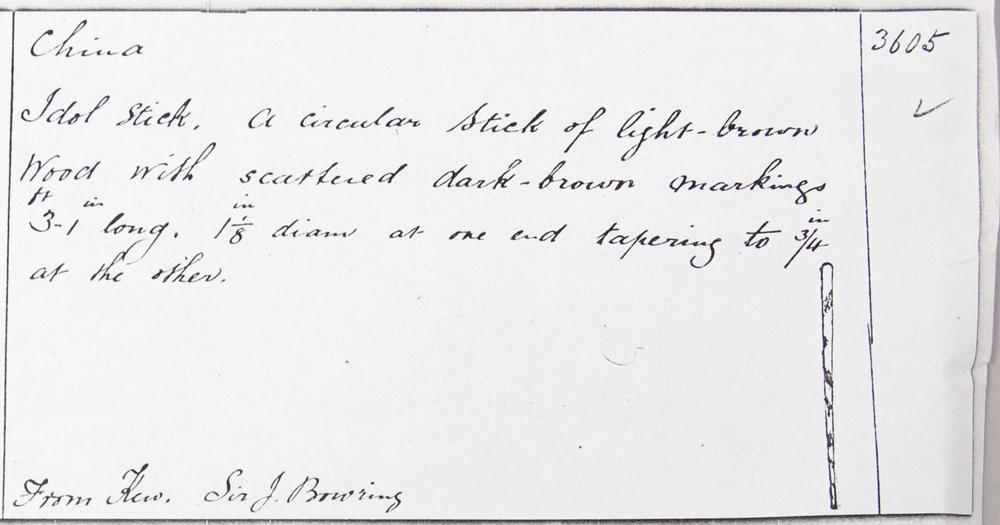 China
3605
Idol Stick. A circular stick of light-brown
Wood with scattered dark-brown markings
3 ft - 1 in long. 1 1/8 in diam at one end tapering to 3/4 in
at the other.
From Kew. Sir J. Bowring